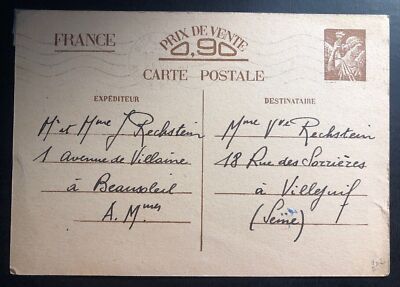 FRANCE
PRIX DE VENTE
0,90
CARTE POSTALE
EXPÉDITEUR
DESTINATAIRE
Mr et Mme J Rechstein
1 Avenue de Villaine
à Beausoleil
A. Mmes
Mme Vve Rechstein
18 Rue des Sorrières
à Villejuif
(Seine)